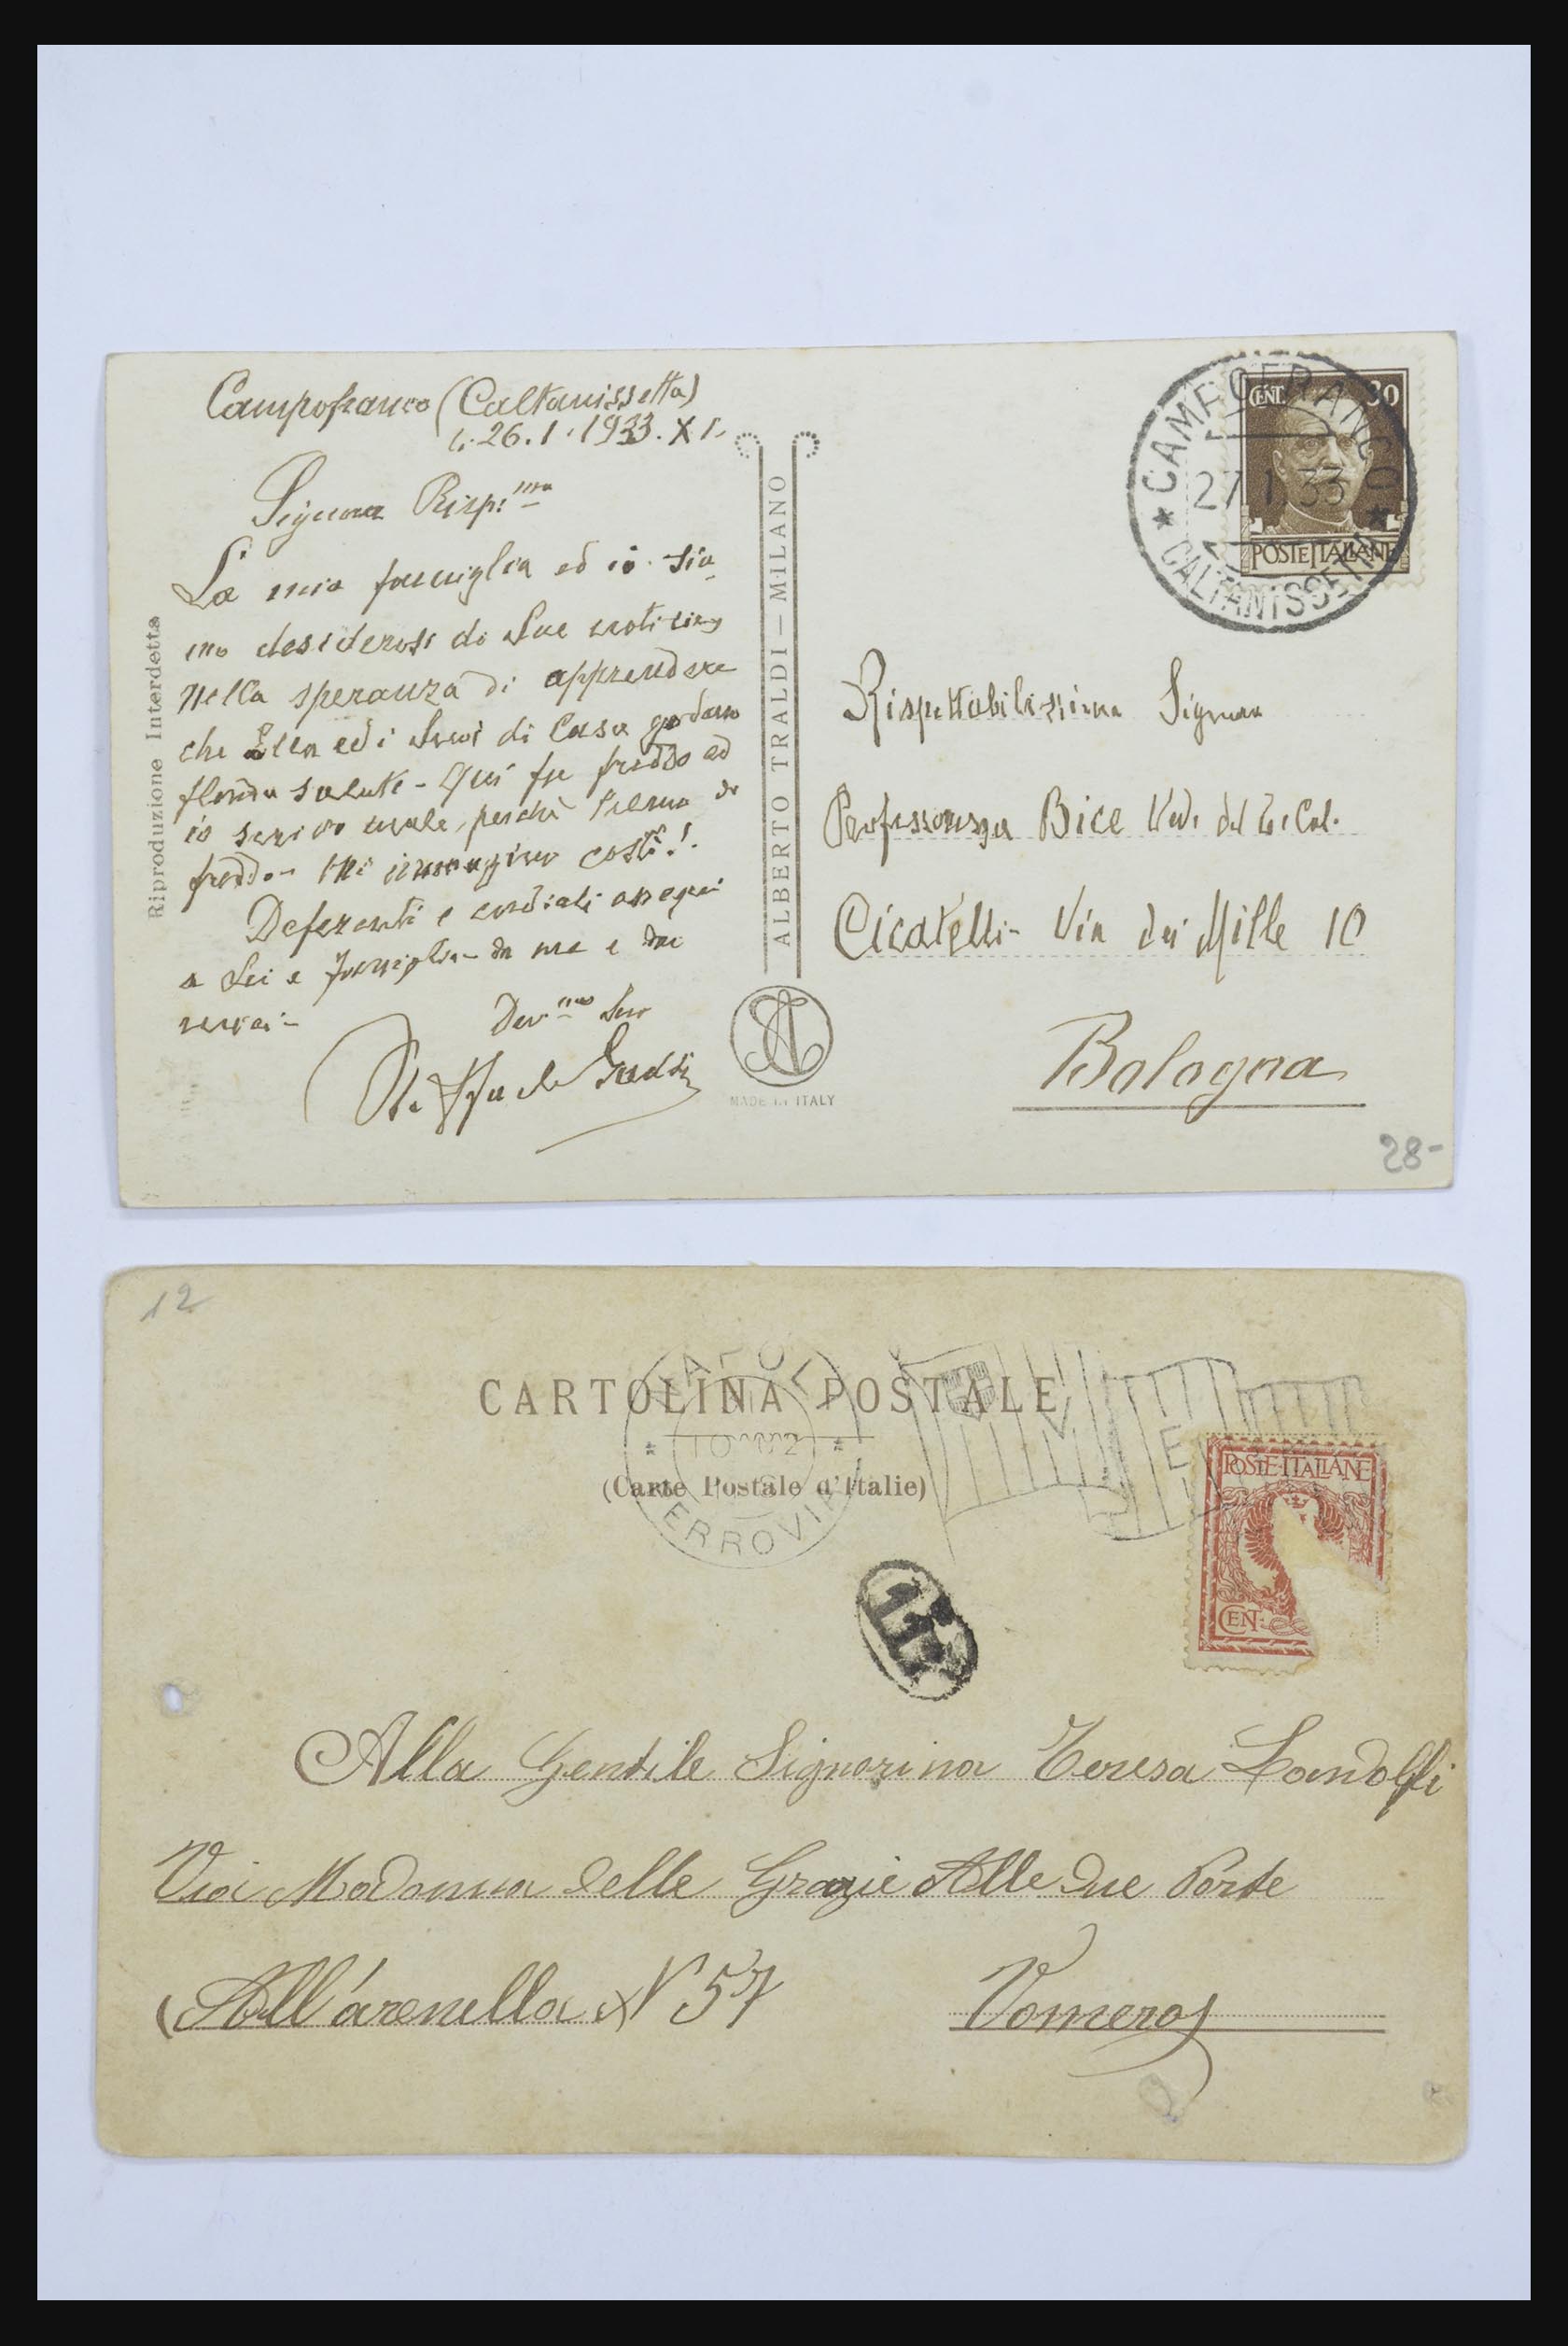 Campofranco (Caltanissetta)
li 26.1.1933.XI.
Signora Risp.ma
La mia famiglia ed io sia-
mo desiderosi di Sue notizie,
nella speranza di apprendere
che Ella ed i Suoi di Casa godano
florida salute - Qui fa freddo ed
io scrivo male, perchè tremo di
freddo - M'immagino costì!
Deferenti e cordiali ossequi
a Lei e famiglia - da me e dai
miei -
Dev.mo Suo
Riproduzione Interdetta
ALBERTO TRALDI - MILANO
MADE IN ITALY
CAMPOFRANCO
27.1.33
CALTANISSETTA
CENT. 30
POSTE ITALIANE
Rispettabilissima Signora
Professoressa Bice Ved. del T. Col.
Cicatelli - Via dei Mille 10
Bologna
28-
12
CARTOLINA POSTALE
(Carte Postale d'Italie)
NAPOLI
FERROVIA
POSTE ITALIANE
CENT.
Alla Gentile Signorina Teresa Landolfi
Via Madonna delle Grazie Alle due Porte
(All'arenella) N 57
Vomero